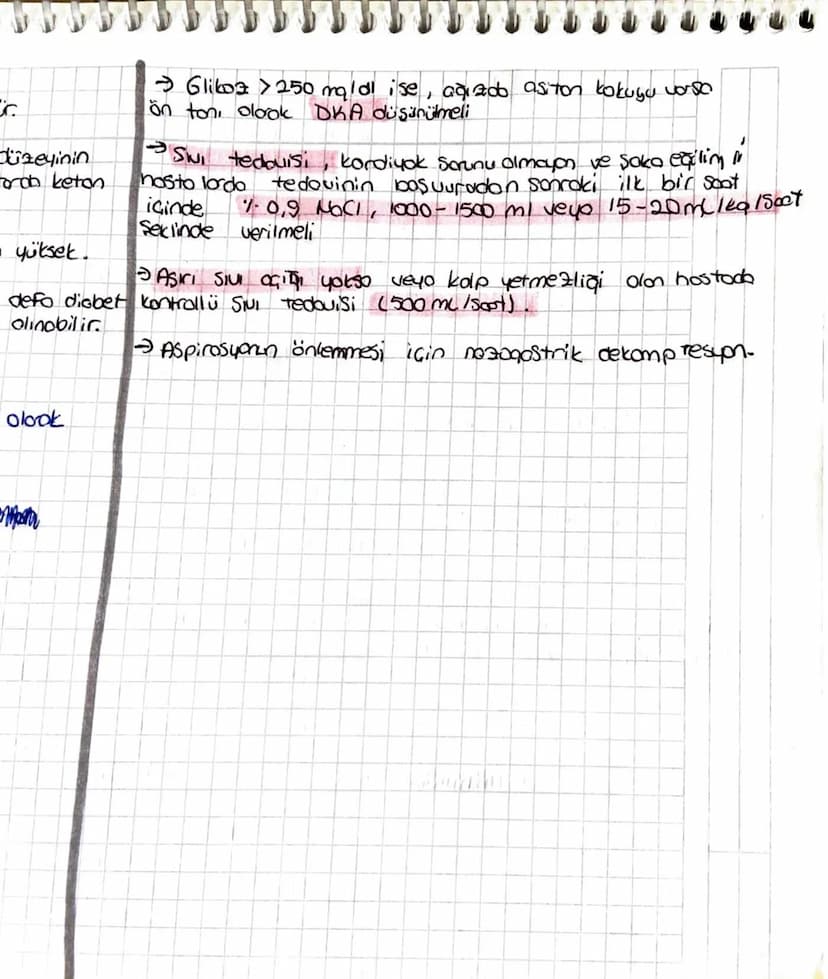 → Glikoz > 250 mg/dl ise, ağızda aseton kokuyu varsa
ön tanı olarak DKA düşünülmeli
→ Sıvı tedavisi, kardiyak sorunu olmayan ve şoka eğilimli
hastalarda tedavinin başvurudan sonraki ilk bir saat
içinde % 0,9 NaCl, 1000-1500 ml veya 15-20 mL/kg/saat
şeklinde verilmeli
→ Aşırı sıvı açığı yoksa veya kalp yetmezliği olan hastada
kontrollü sıvı tedavisi (500 mL/saat).
→ Aspirasyonun önlenmesi için nazogastrik dekompresyon.
düzeyinin
keton
yüksek.
defa diabet
alınabilir.
olarak